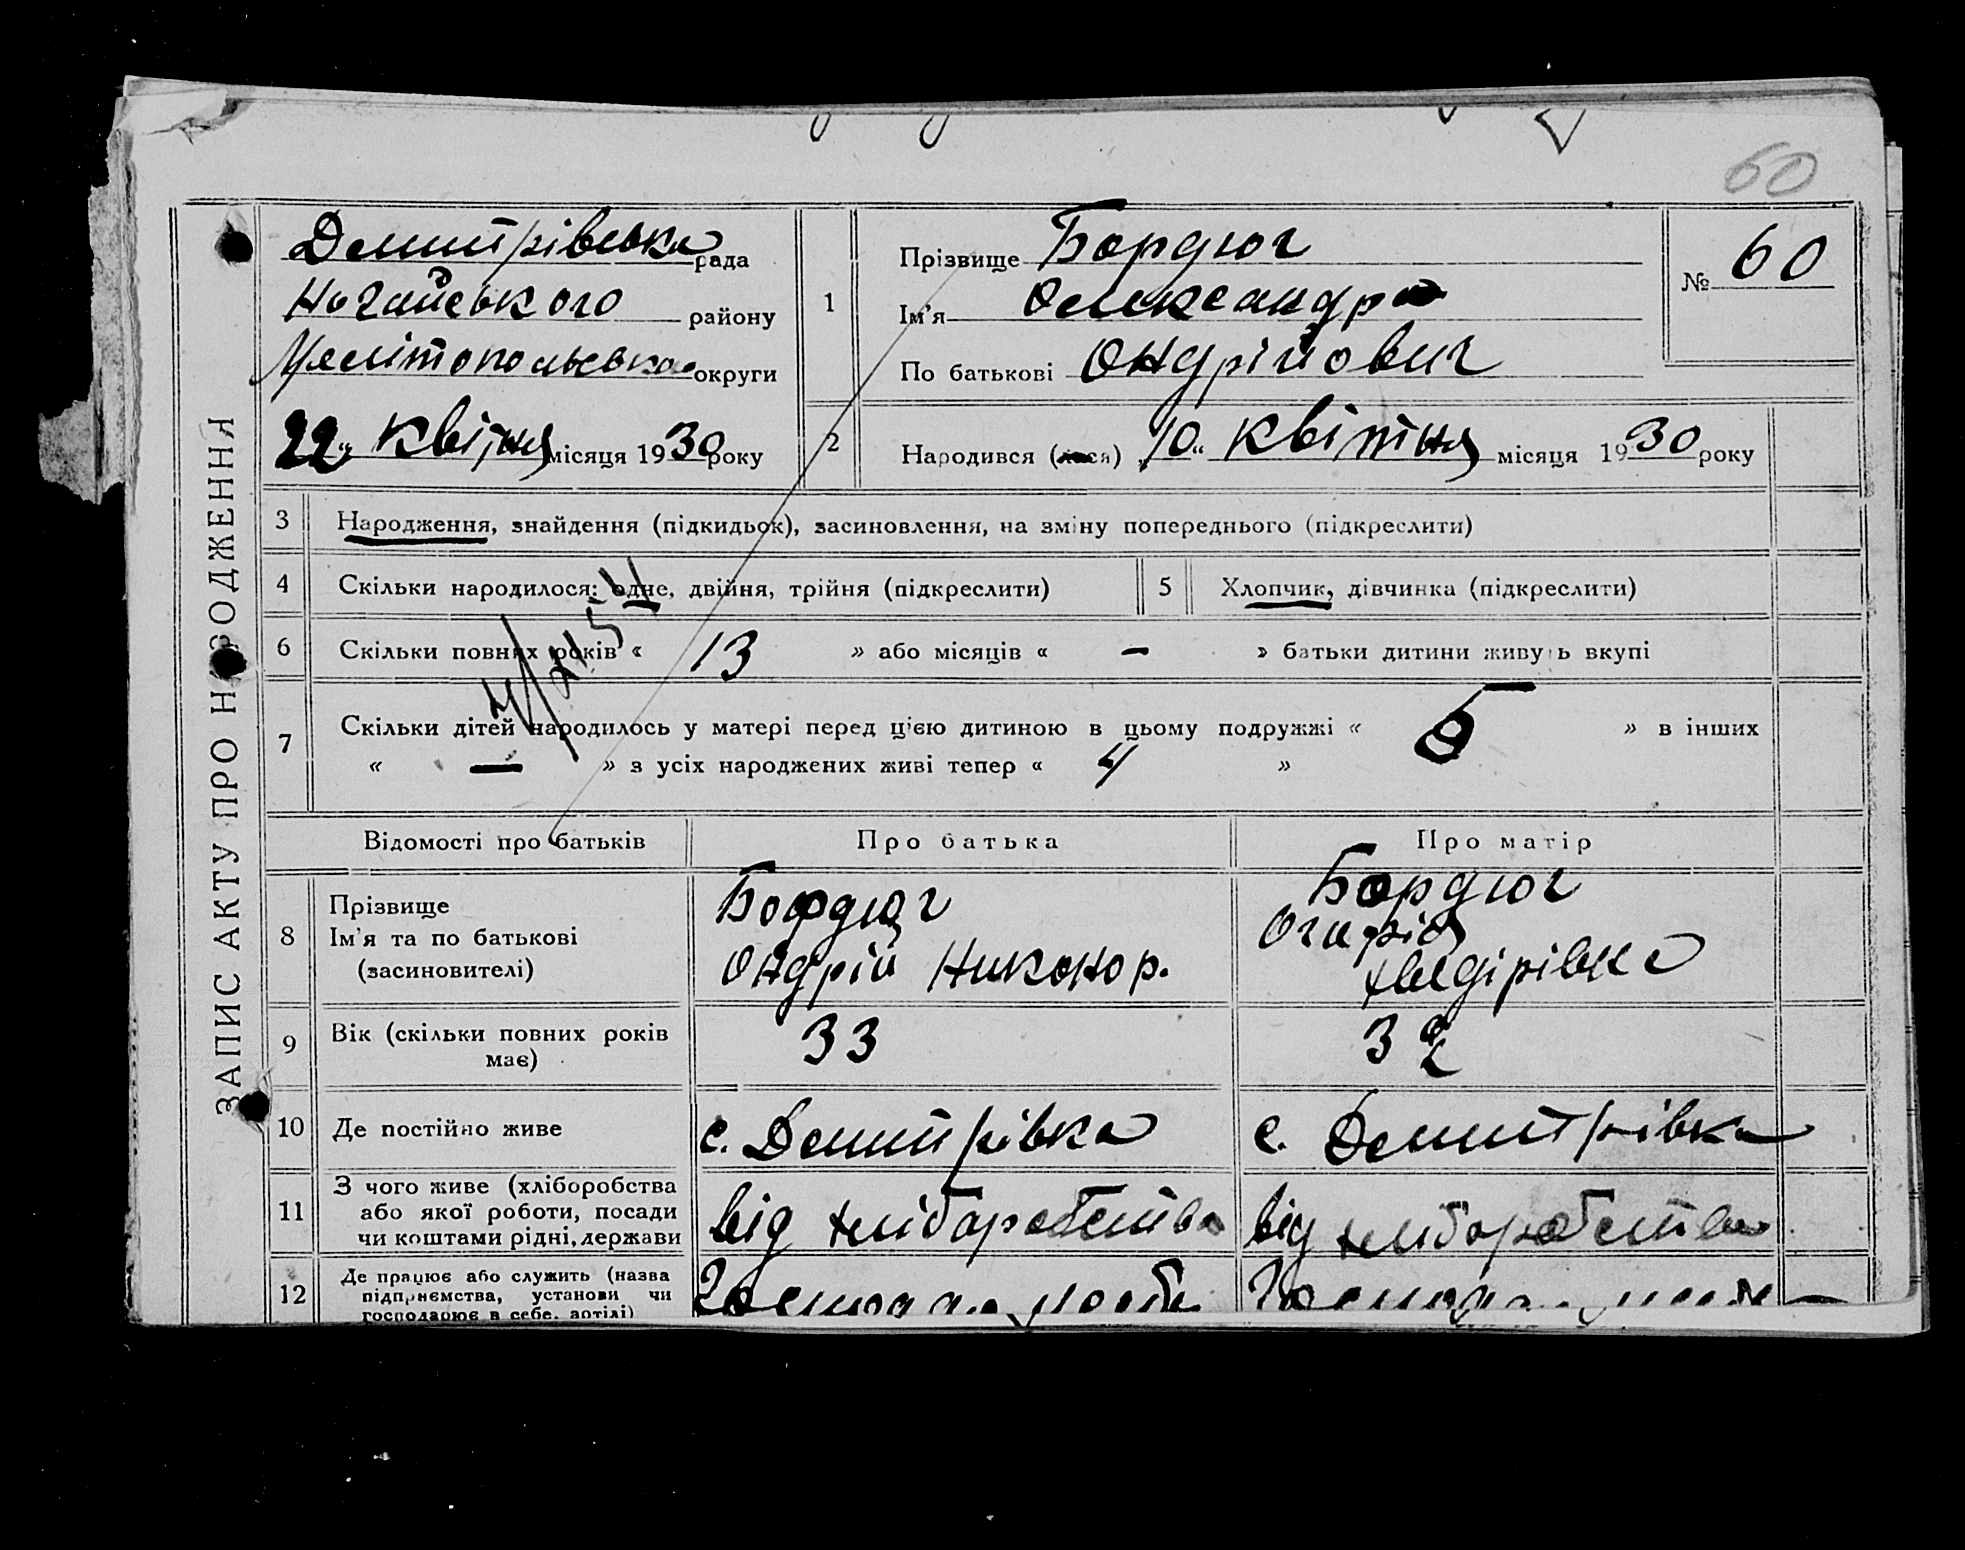 60
ЗАПИС АКТУ ПРО НАРОДЖЕННЯ
Демитрівська рада
Ногайського району
Мелітопольська округи
22 квітня місяця 1930 року
1
Прізвище Бордюг
Ім'я Олександр
По батькові Ондрійович
№ 60
2
Народився (лася) „10“ квітня місяця 1930 року
3 Народження, знайдення (підкидьок), засиновлення, на зміну попереднього (підкреслити)
4 Скільки народилося: одне, двійня, трійня (підкреслити)
5 Хлопчик, дівчинка (підкреслити)
6 Скільки повних років « 13 » або місяців « – » батьки дитини живуть вкупі
7 Скільки дітей народилось у матері перед цією дитиною в цьому подружжі « 5 » в інших
« — » з усіх народжених живі тепер « 4 »
Відомості про батьків Про батька Про матір
8 Прізвище
Ім'я та по батькові
(засиновителі)
Бордюг
Ондрій Никонор.
Бордюг
9 Вік (скільки повних років
має)
33
32
10 Де постійно живе
с. Демитрівка
с. Демитрівка
11 З чого живе (хліборобства
або якої роботи, посади
чи коштами рідні, держави
від хліборобства
від хліборобства
12 Де працює або служить (назва
підприємства, установи чи
господарює в себе, артілі)